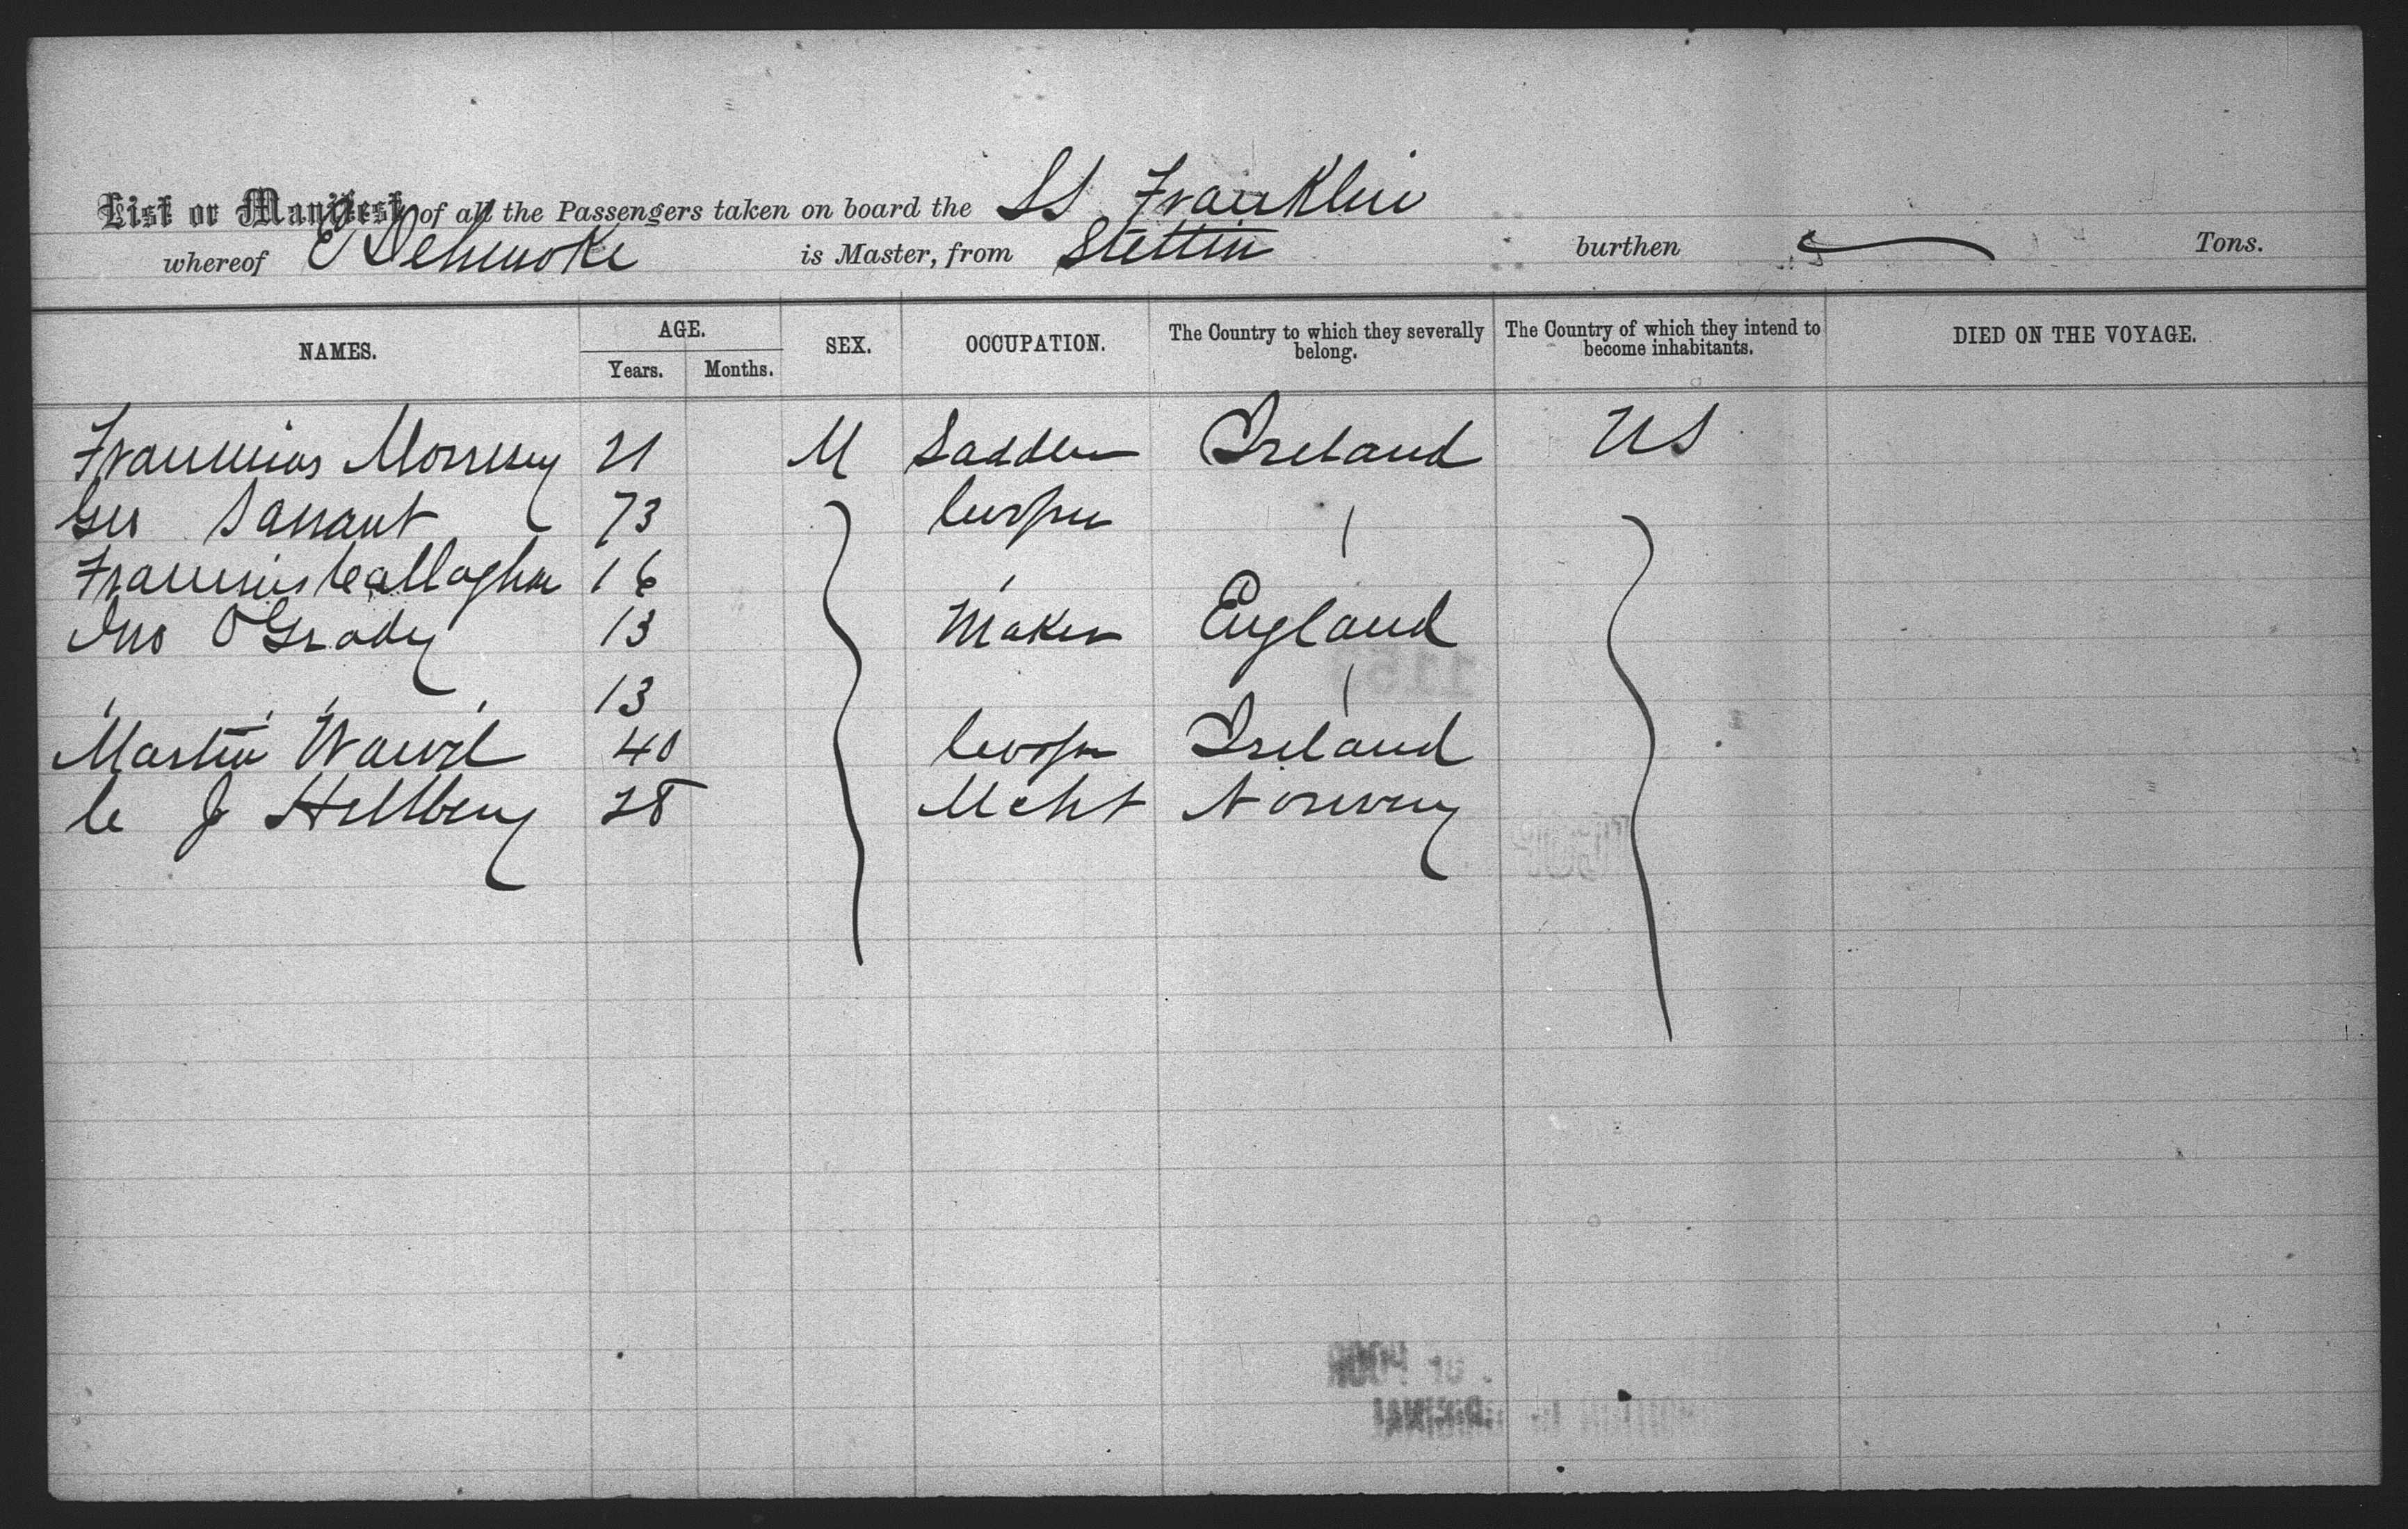 List or Manifest of all the Passengers taken on board the SS Franklin
whereof is Master, from Stettin burthen Tons.
NAMES. AGE. SEX. OCCUPATION. The Country to which they severally belong. The Country of which they intend to become inhabitants. DIED ON THE VOYAGE.
Years. Months.
Morrisey 21 M Saddler Ireland US
73 Cooper
Callaghan 16
Jno O'Grady 13 Maker England
13
Martin Ward 40 Cooper Ireland
C J Hellberg 28 Mcht Norway